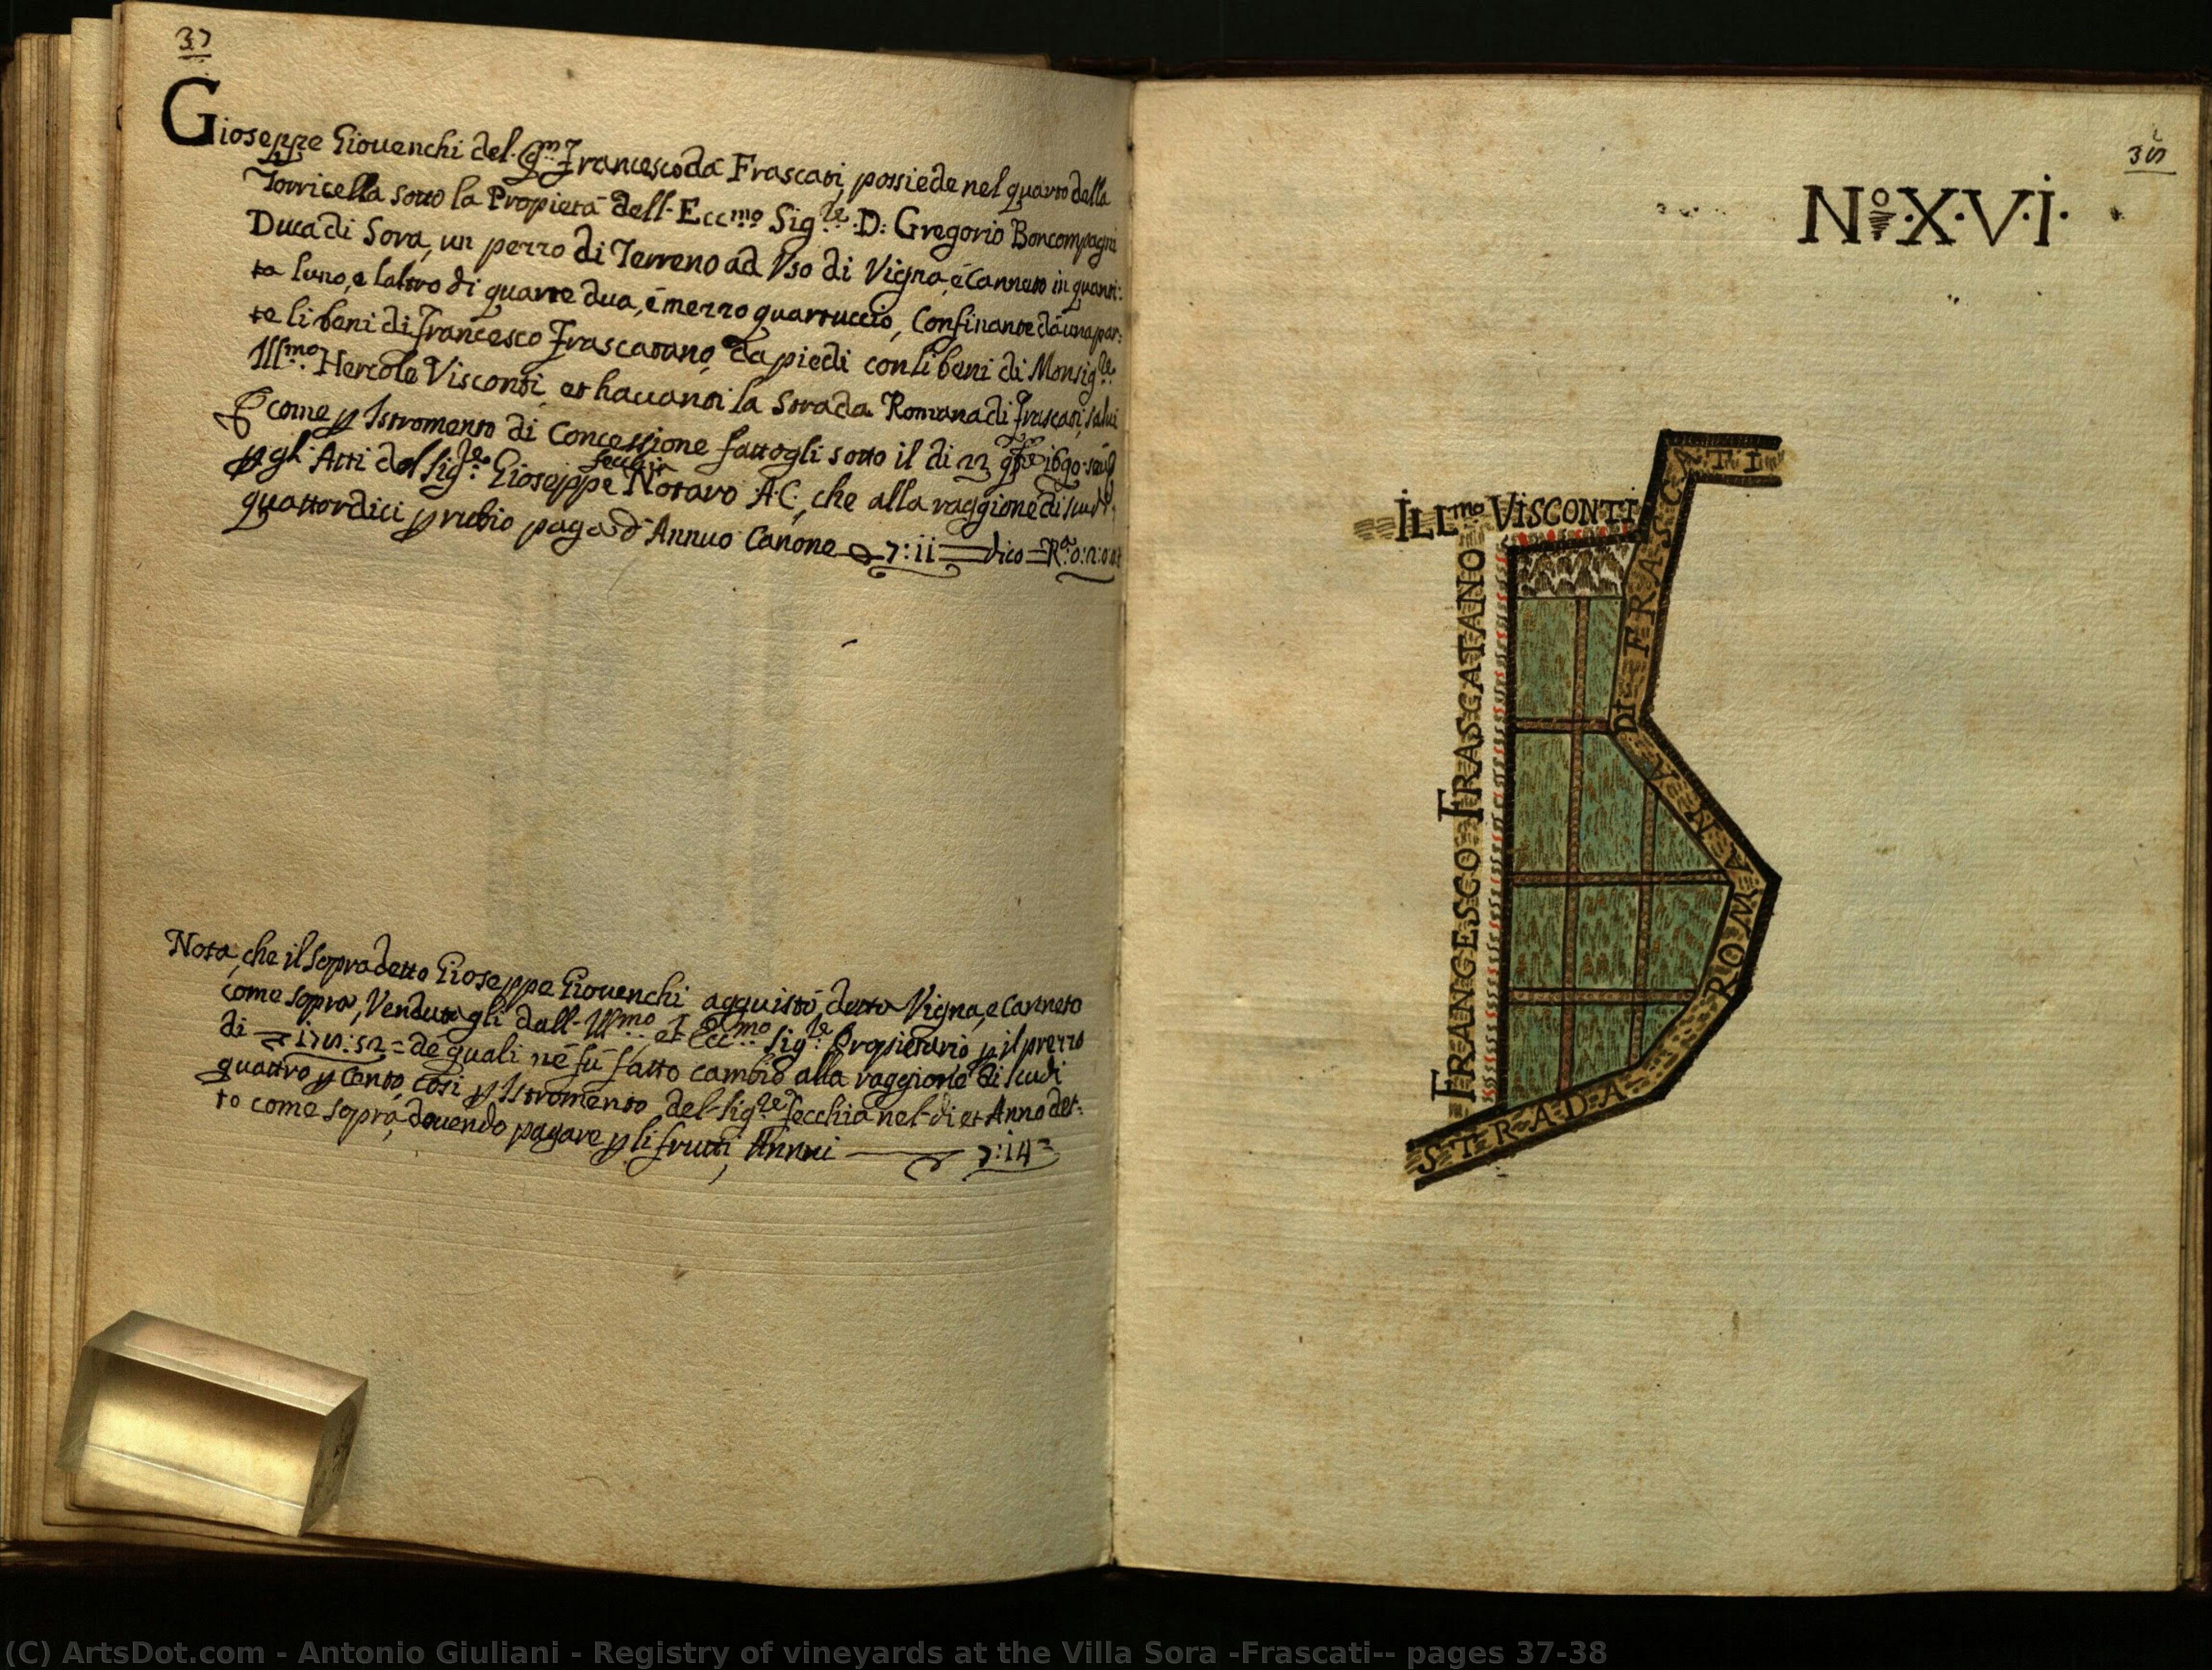 37
Gioseppe Giouenchi del qm Francesco da Frascati, possiede nel quarto della
Torricella sotto la Propietà dell Eccmo Sigre D: Gregorio Boncompagni
Duca di Sora, un pezzo di Terreno ad Vso di Vigna, è Canneto in quanti:
ta luno, e laltro di quarte dua, è mezzo quartuccio, Confinante dà una par:
te li beni di Francesco Frascatano, da piedi con li beni di Monsigre
Illmo Hercole Visconti, et hauanti la Strada Romana di Frascati, salui
&c come p Istromento di Concessione fattogli sotto il di 1690
p gli Atti del Sigre Gioseppe Secchia Notaro A.C., che alla raggione di scudi
quattordici p rubio paga d'Annuo Canone 7:ii dico
Nota, che il sopradetto Gioseppe Giouenchi acquistò, detta Vigna, e Canneto
come sopra, Vendutagli dall Illmo, et Eccmo Sigre Propietario p il prezzo
di de quali, nè fù fatto cambio alla raggione di scudi
quattro p cento, così p Istromento del Sigre Secchia nel dì et Anno det:
to come sopra, douendo pagare p li frutti Annui 7:i4
38
No X·V·I·
ILLmo VISCONTI
FRANCESCO FRASCATANO
STRADA ROMANA DI FRASCATI
(C) ArtsDot.com - Antonio Giuliani - Registry of vineyards at the Villa Sora -Frascati-- pages 37-38